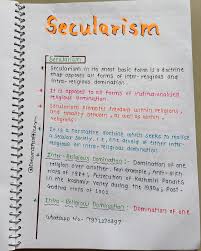 Secularism
Secularism
Secularism in its most basic form is a doctrine
that opposes all forms of inter-religious and
intra-religious domination
It is opposed to all forms of institutionalised
religious domination.
Secularism promotes freedom within religions,
and equality between, as well as within,
religions.
It is a normative doctrine which seeks to realise
a secular society, i.e., one devoid of either inter-
religious or intra-religious domination.
Inter-Religious Domination: Domination of one
religion over another. For example, Anti-Sikh
riots of 1984, Persecution of Kashmiri Pandits
in the Kashmir Valley during the 1990s, Post-
Godhra riots of 2002.
Intra-Religious Domination: Domination of one